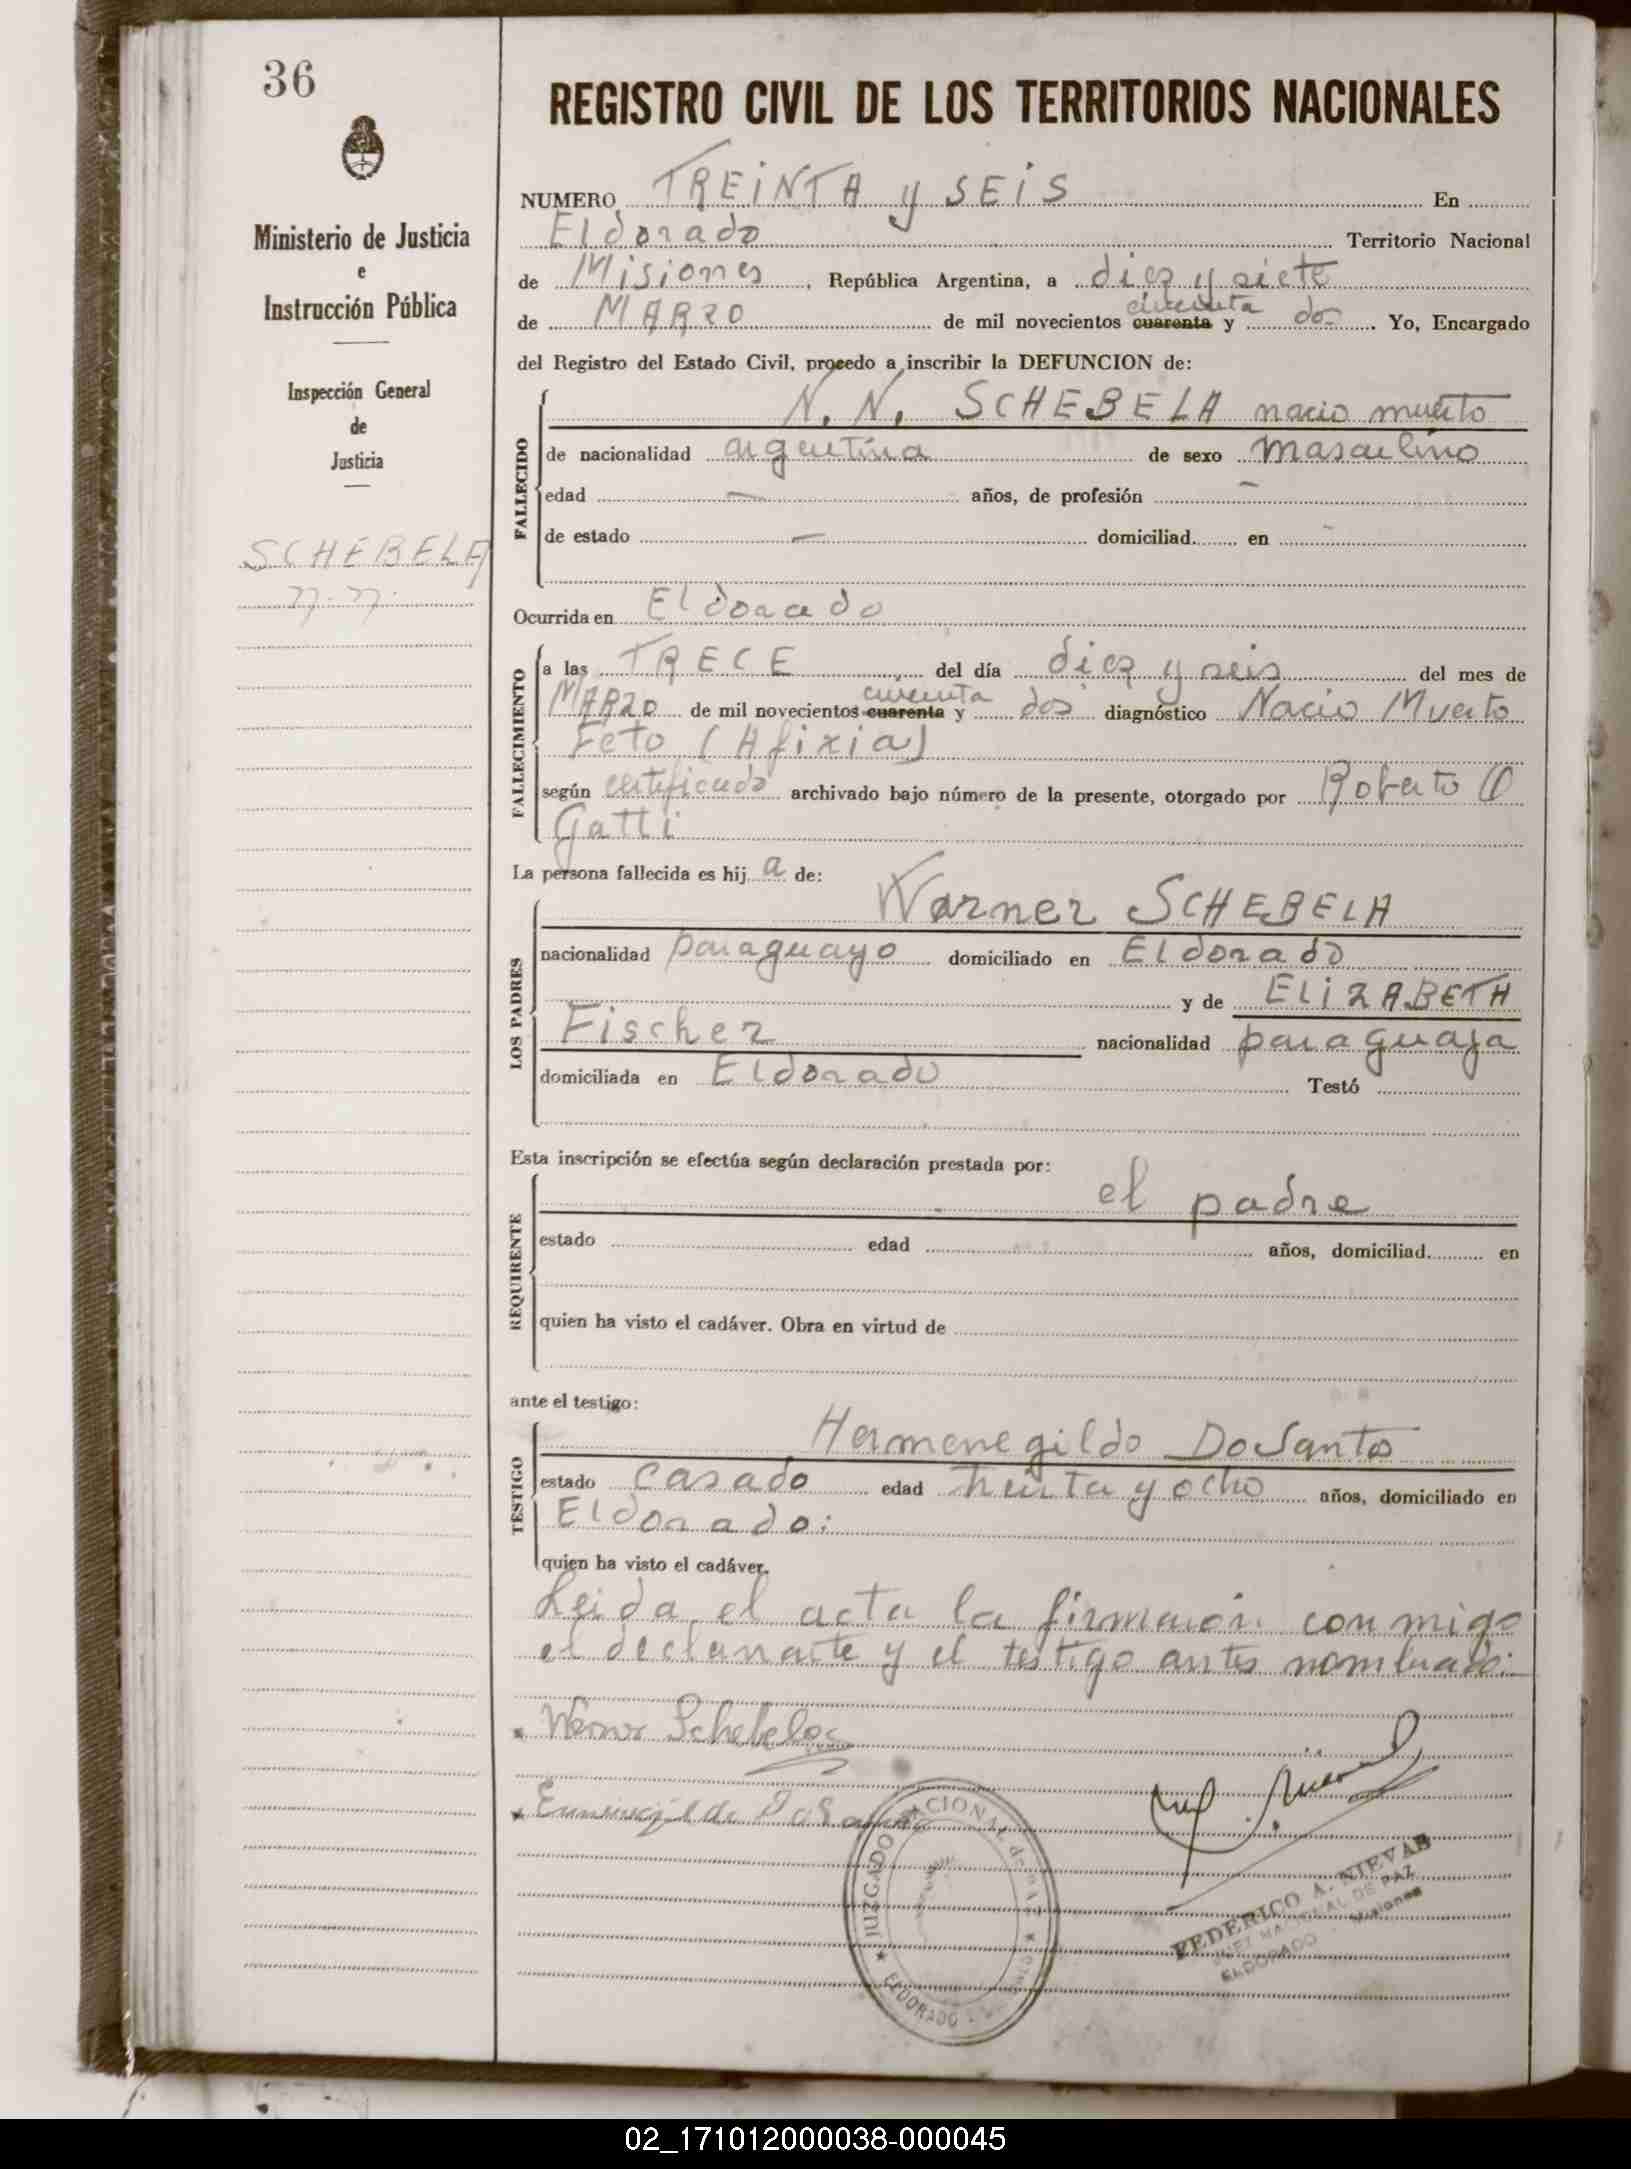 36
Ministerio de Justicia
e
Instrucción Pública
Inspección General
de
Justicia
SCHEBELA
N.N.
REGISTRO CIVIL DE LOS TERRITORIOS NACIONALES
NUMERO TREINTA y SEIS En
Eldorado Territorio Nacional
de Misiones, República Argentina, a diez y siete
cincuenta
de MARZO de mil novecientos cuarenta y dos. Yo, Encargado
del Registro del Estado Civil, procedo a inscribir la DEFUNCION de:
FALLECIDO
N. N. SCHEBELA nacio muerto
de nacionalidad argentina de sexo masculino
edad — años, de profesión —
de estado — domiciliad en -
Ocurrida en Eldorado
FALLECIMIENTO
a las TRECE del día diez y seis del mes de
cincuenta
MARZO de mil novecientos cuarenta y dos diagnóstico Nacio Muerto
Feto (Afixia)
según certificado archivado bajo número de la presente, otorgado por Roberto O
Gatti
La persona fallecida es hij a de:
LOS PADRES
Warner SCHEBELA
nacionalidad paraguayo domiciliado en Eldorado
y de ELIZABETH
Fischer nacionalidad paraguaja
domiciliada en Eldorado Testó
Esta inscripción se efectúa según declaración prestada por:
REQUIRENTE
el padre
estado edad años, domiciliad en
quien ha visto el cadáver. Obra en virtud de
ante el testigo:
TESTIGO
Hermenegildo DoSantos
estado casado edad treinta y ocho años, domiciliado en
Eldorado:
quien ha visto el cadáver.
Leida el acta la firmaron conmigo
el declarante y el testigo antes nombrado:
Werner Schebela
JUZGADO NACIONAL de PAZ
ELDORADO
FEDERICO A. NIEVAS
JUEZ NACIONAL DE PAZ
ELDORADO - Misiones
02_171012000038-000045